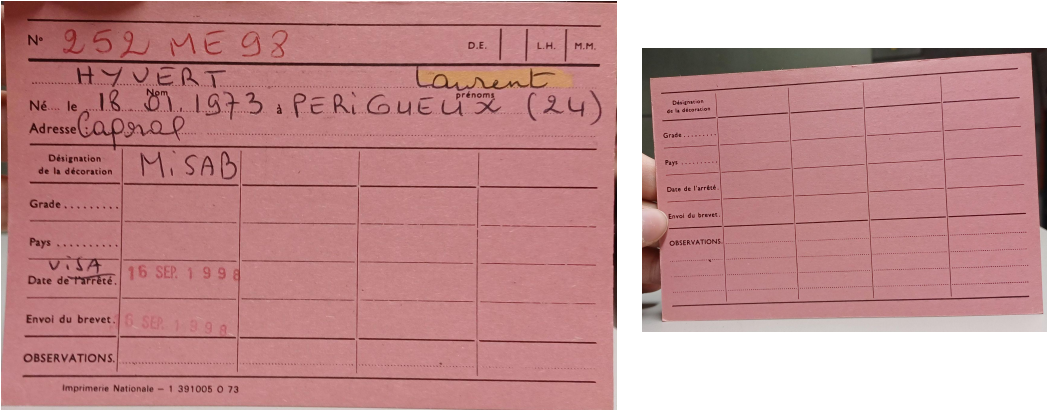 N° 252 ME 98 D.E. L.H. M.M.
HYVERT Laurent
Nom prénoms
Né le 18 01 1973 à PERiGUEUX (24)
Adresse Caporal
Désignation de la décoration MiSAB
Grade
Pays
ViSA
Date de l'arrêté. 16 SEP. 1998
Envoi du brevet. 16 SEP. 1998
OBSERVATIONS.
Imprimerie Nationale — 1 391005 O 73
Désignation
de la décoration
Grade
Pays
Date de l'arrêté.
Envoi du brevet.
OBSERVATIONS.